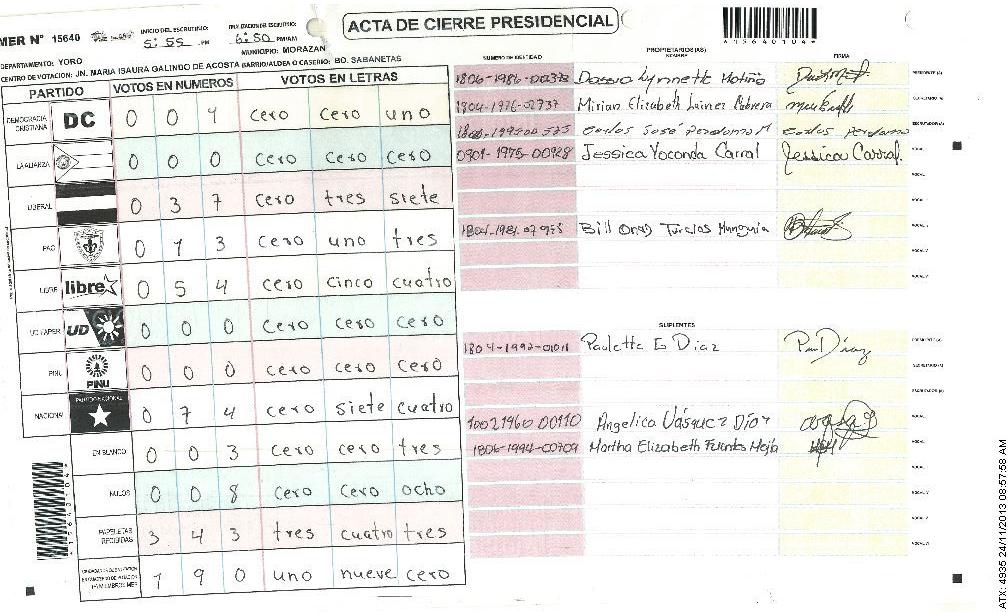 ACTA DE CIERRE PRESIDENCIAL
MER N° 15640
INICIO DEL ESCRUTINIO: 5:55 PM
6:50 PM/AM
DEPARTAMENTO: YORO
MUNICIPIO: MORAZAN
CENTRO DE VOTACION: JN. MARIA ISAURA GALINDO DE ACOSTA BARRIO/ALDEA O CASERIO: BO. SABANETAS
PARTIDO VOTOS EN NUMEROS VOTOS EN LETRAS
DEMOCRACIA CRISTIANA DC 0 0 1 cero cero uno
LA ALIANZA 0 0 0 cero cero cero
LIBERAL 0 3 7 cero tres siete
PAC 0 1 3 cero uno tres
LIBRE libre 0 5 4 cero cinco cuatro
UD FAPER UD 0 0 0 cero cero cero
PINU PINU 0 0 0 cero cero cero
NACIONAL PARTIDO NACIONAL 0 7 4 cero siete cuatro
EN BLANCO 0 0 3 cero cero tres
NULOS 0 0 8 cero cero ocho
PAPELETAS RECIBIDAS 3 4 3 tres cuatro tres
1 9 0 uno nueve cero
NUMERO DE IDENTIDAD PROPIETARIOS (AS) NOMBRE FIRMA
Lynnette PRESIDENTE (A)
1804-1976-02737 Mirian Elizabeth Lainez Cabrera SECRETARIO (A)
Carlos José Perdomo M Carlos Perdomo ESCRUTADOR (A)
0801-1975-00928 Jessica Yoconda Carral Jessica Carral. VOCAL
Bill
SUPLENTES
1804-1992-01011 Paulette G Diaz PRESIDENTE (A)
SECRETARIO (A)
ESCRUTADOR (A)
Angelica Vásquez Díaz VOCAL
1806-1994-00709 Martha Elizabeth Fuentes Mejía
ATX: 4935 24/11/2013 08:57:58 AM